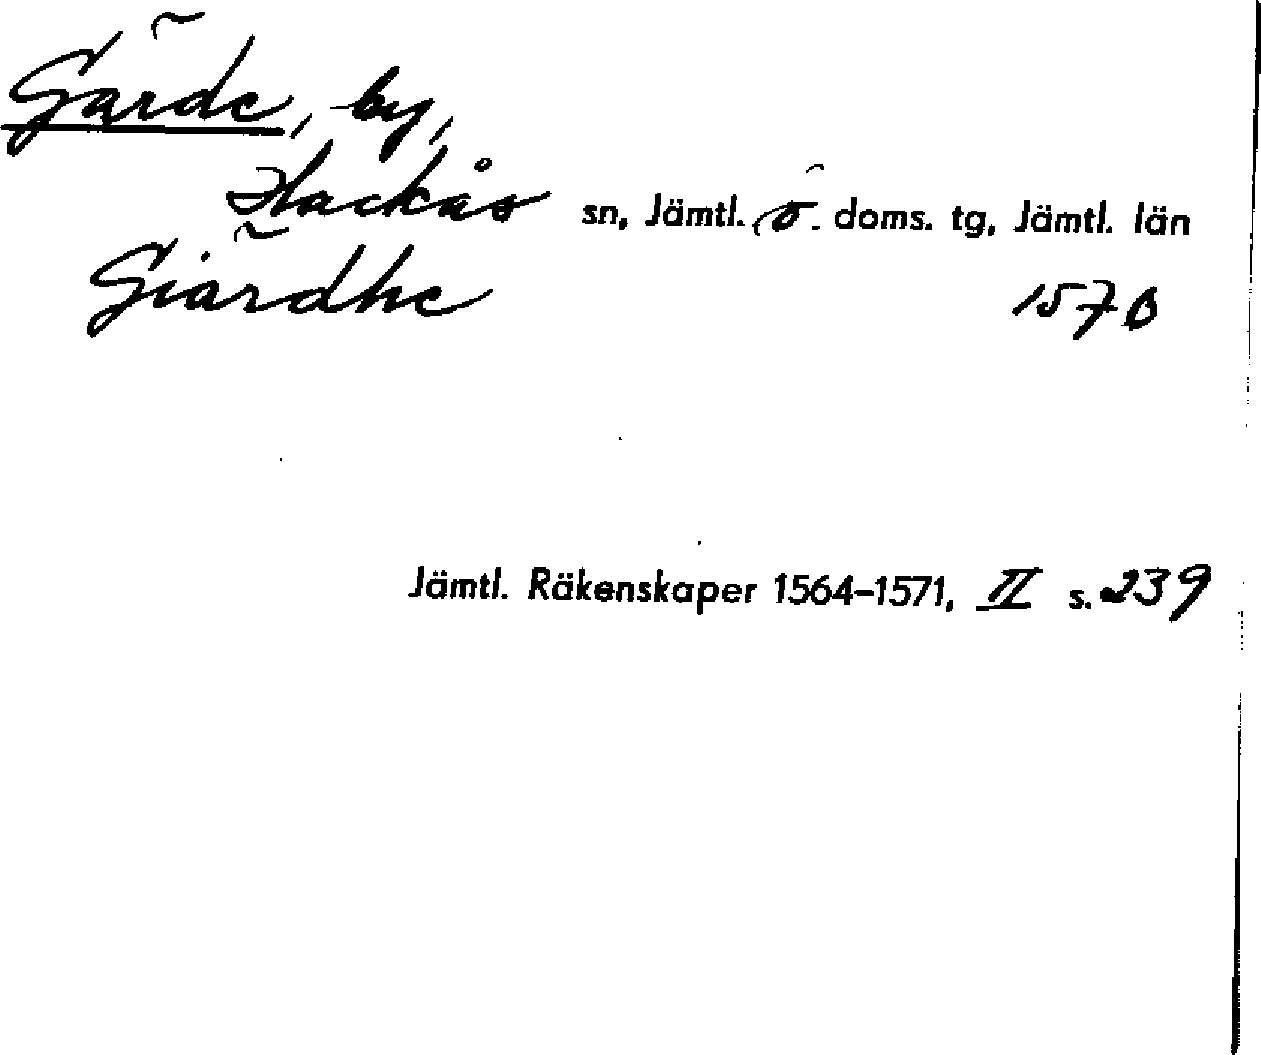 Gärde, by,
Hackås sn, Jämtl. ö. doms. tg, Jämtl. län
Giärdhe 1570
Jämtl. Räkenskaper 1564-1571, II s. 239